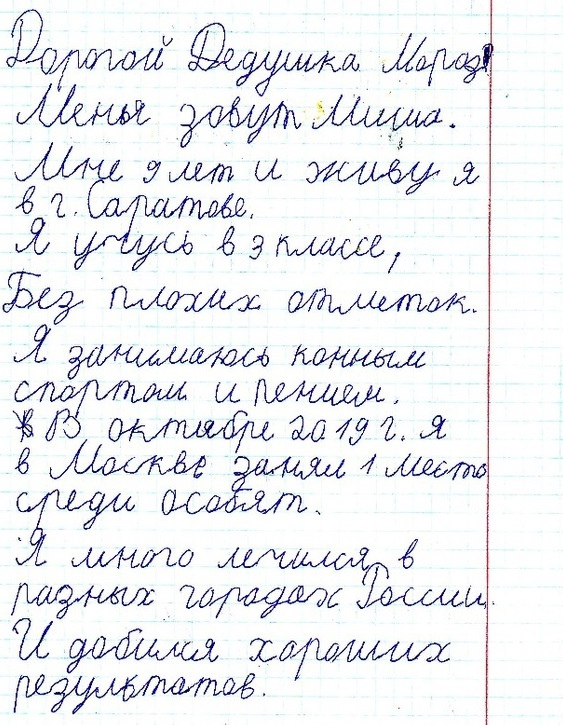 Дорогой Дедушка Мороз
Менья зовут Миша.
Мне 9 лет и живу я
в г. Саратове.
Я учусь в 3 классе,
Без плохих отметок.
Я занимаюсь конным
спортом и пением.
В октябре 2019 г. я
в Москве занял 1 место
среди особят.
Я много лечился в
разных городах России.
И добился хороших
результатов.